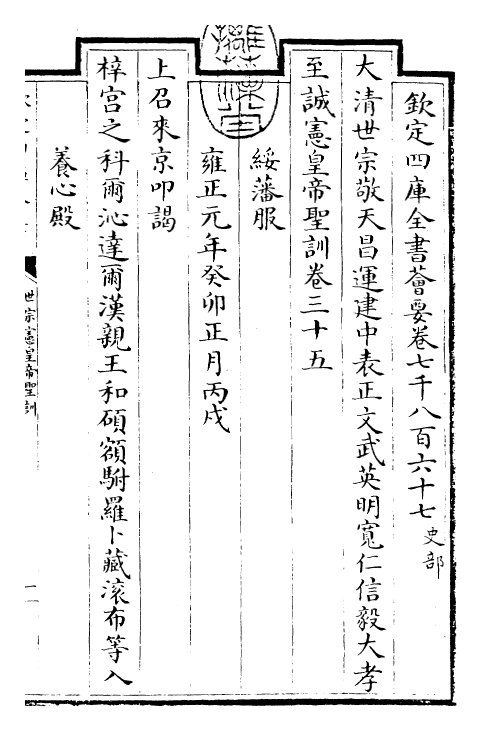 欽定四庫全書薈要卷七千八百六十七 史部
大清世宗敬天昌運建中表正文武英明寬仁信毅大孝
至誠憲皇帝聖訓卷三十五
綏藩服
雍正元年癸卯正月丙戌
上召來京叩謁
梓宫之科爾沁達爾漢親王和碩額駙羅卜藏滚布等入
養心殿
世宗憲皇帝聖訓
一